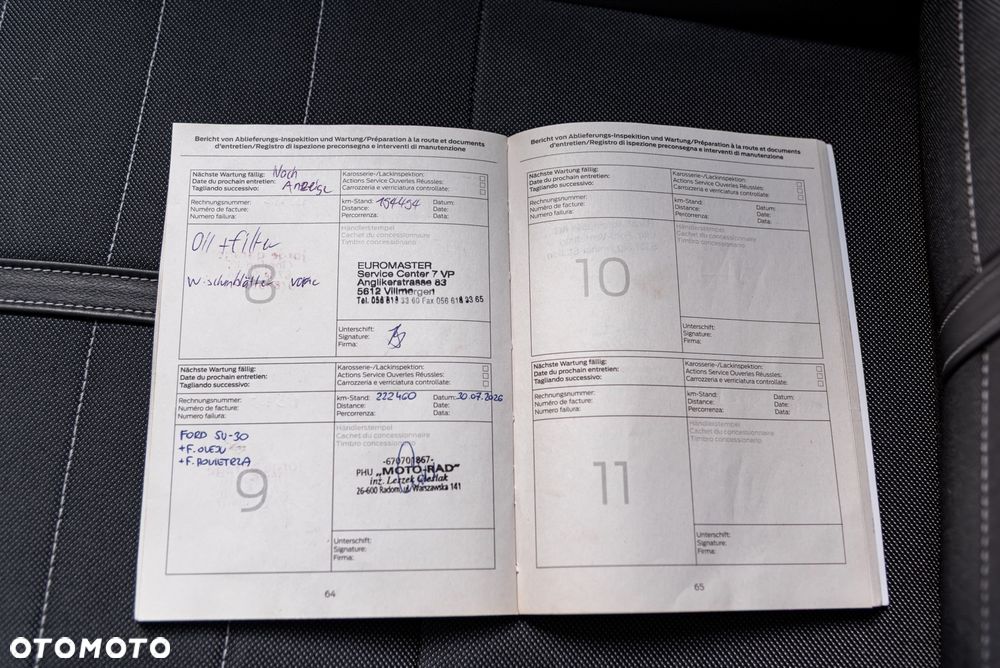 Bericht von Ablieferungs-Inspekition und Wartung/Préparation à la route et documents
d'entretien/Registro di ispezione preconsegna e interventi di manutenzione
Nächste Wartung fällig: Nach
Date du prochain entretien: Anzeige
Tagliando successivo:
Karosserie-/Lackinspektion:
Actions Service Ouverles Réusles:
Carrozzeria e verriciatura controllate:
Rechnungsnummer:
Numéro de facture:
Numero failura:
km-Stand: 194494 Datum:
Distance: Date:
Percorrenza: Data:
Oil + filter
8
Händlerstempel
Cachet du concessionnaire
Timbro concessionario
EUROMASTER
Service Center 7 VP
Anglikerstrasse 83
5612 Villmergen
Tel. 056 618 33 60 Fax 056 618 33 65
Unterschift:
Signature:
Firma:
Nächste Wartung fällig:
Date du prochain entretien:
Tagliando successivo:
Karosserie-/Lackinspektion:
Actions Service Ouverles Réusles:
Carrozzeria e verriciatura controllate:
Rechnungsnummer:
Numéro de facture:
Numero failura:
km-Stand: 222460 Datum: 30.07.2026
Distance: Date:
Percorrenza: Data:
FORD 5W-30
+F. OLEJU
+F. POWIETRZA
9
Händlerstempel
Cachet du concessionnaire
Timbro concessionario
-670701867-
PHU „MOTO-RAD"
inż. Leszek
26-600 Radom, ul. Warszawska 141
Unterschift:
Signature:
Firma:
64
Bericht von Ablieferungs-Inspekition und Wartung/Préparation à la route et documents
d'entretien/Registro di ispezione preconsegna e interventi di manutenzione
Nächste Wartung fällig:
Date du prochain entretien:
Tagliando successivo:
Karosserie-/Lackinspektion:
Actions Service Ouverles Réusles:
Carrozzeria e verriciatura controllate:
Rechnungsnummer:
Numéro de facture:
Numero failura:
km-Stand: Datum:
Distance: Date:
Percorrenza: Data:
10
Händlerstempel
Cachet du concessionnaire
Timbro concessionario
Unterschift:
Signature:
Firma:
Nächste Wartung fällig:
Date du prochain entretien:
Tagliando successivo:
Karosserie-/Lackinspektion:
Actions Service Ouverles Réusles:
Carrozzeria e verriciatura controllate:
Rechnungsnummer:
Numéro de facture:
Numero failura:
km-Stand: Datum:
Distance: Date:
Percorrenza: Data:
11
Händlerstempel
Cachet du concessionnaire
Timbro concessionario
Unterschift:
Signature:
Firma:
65
OTOMOTO